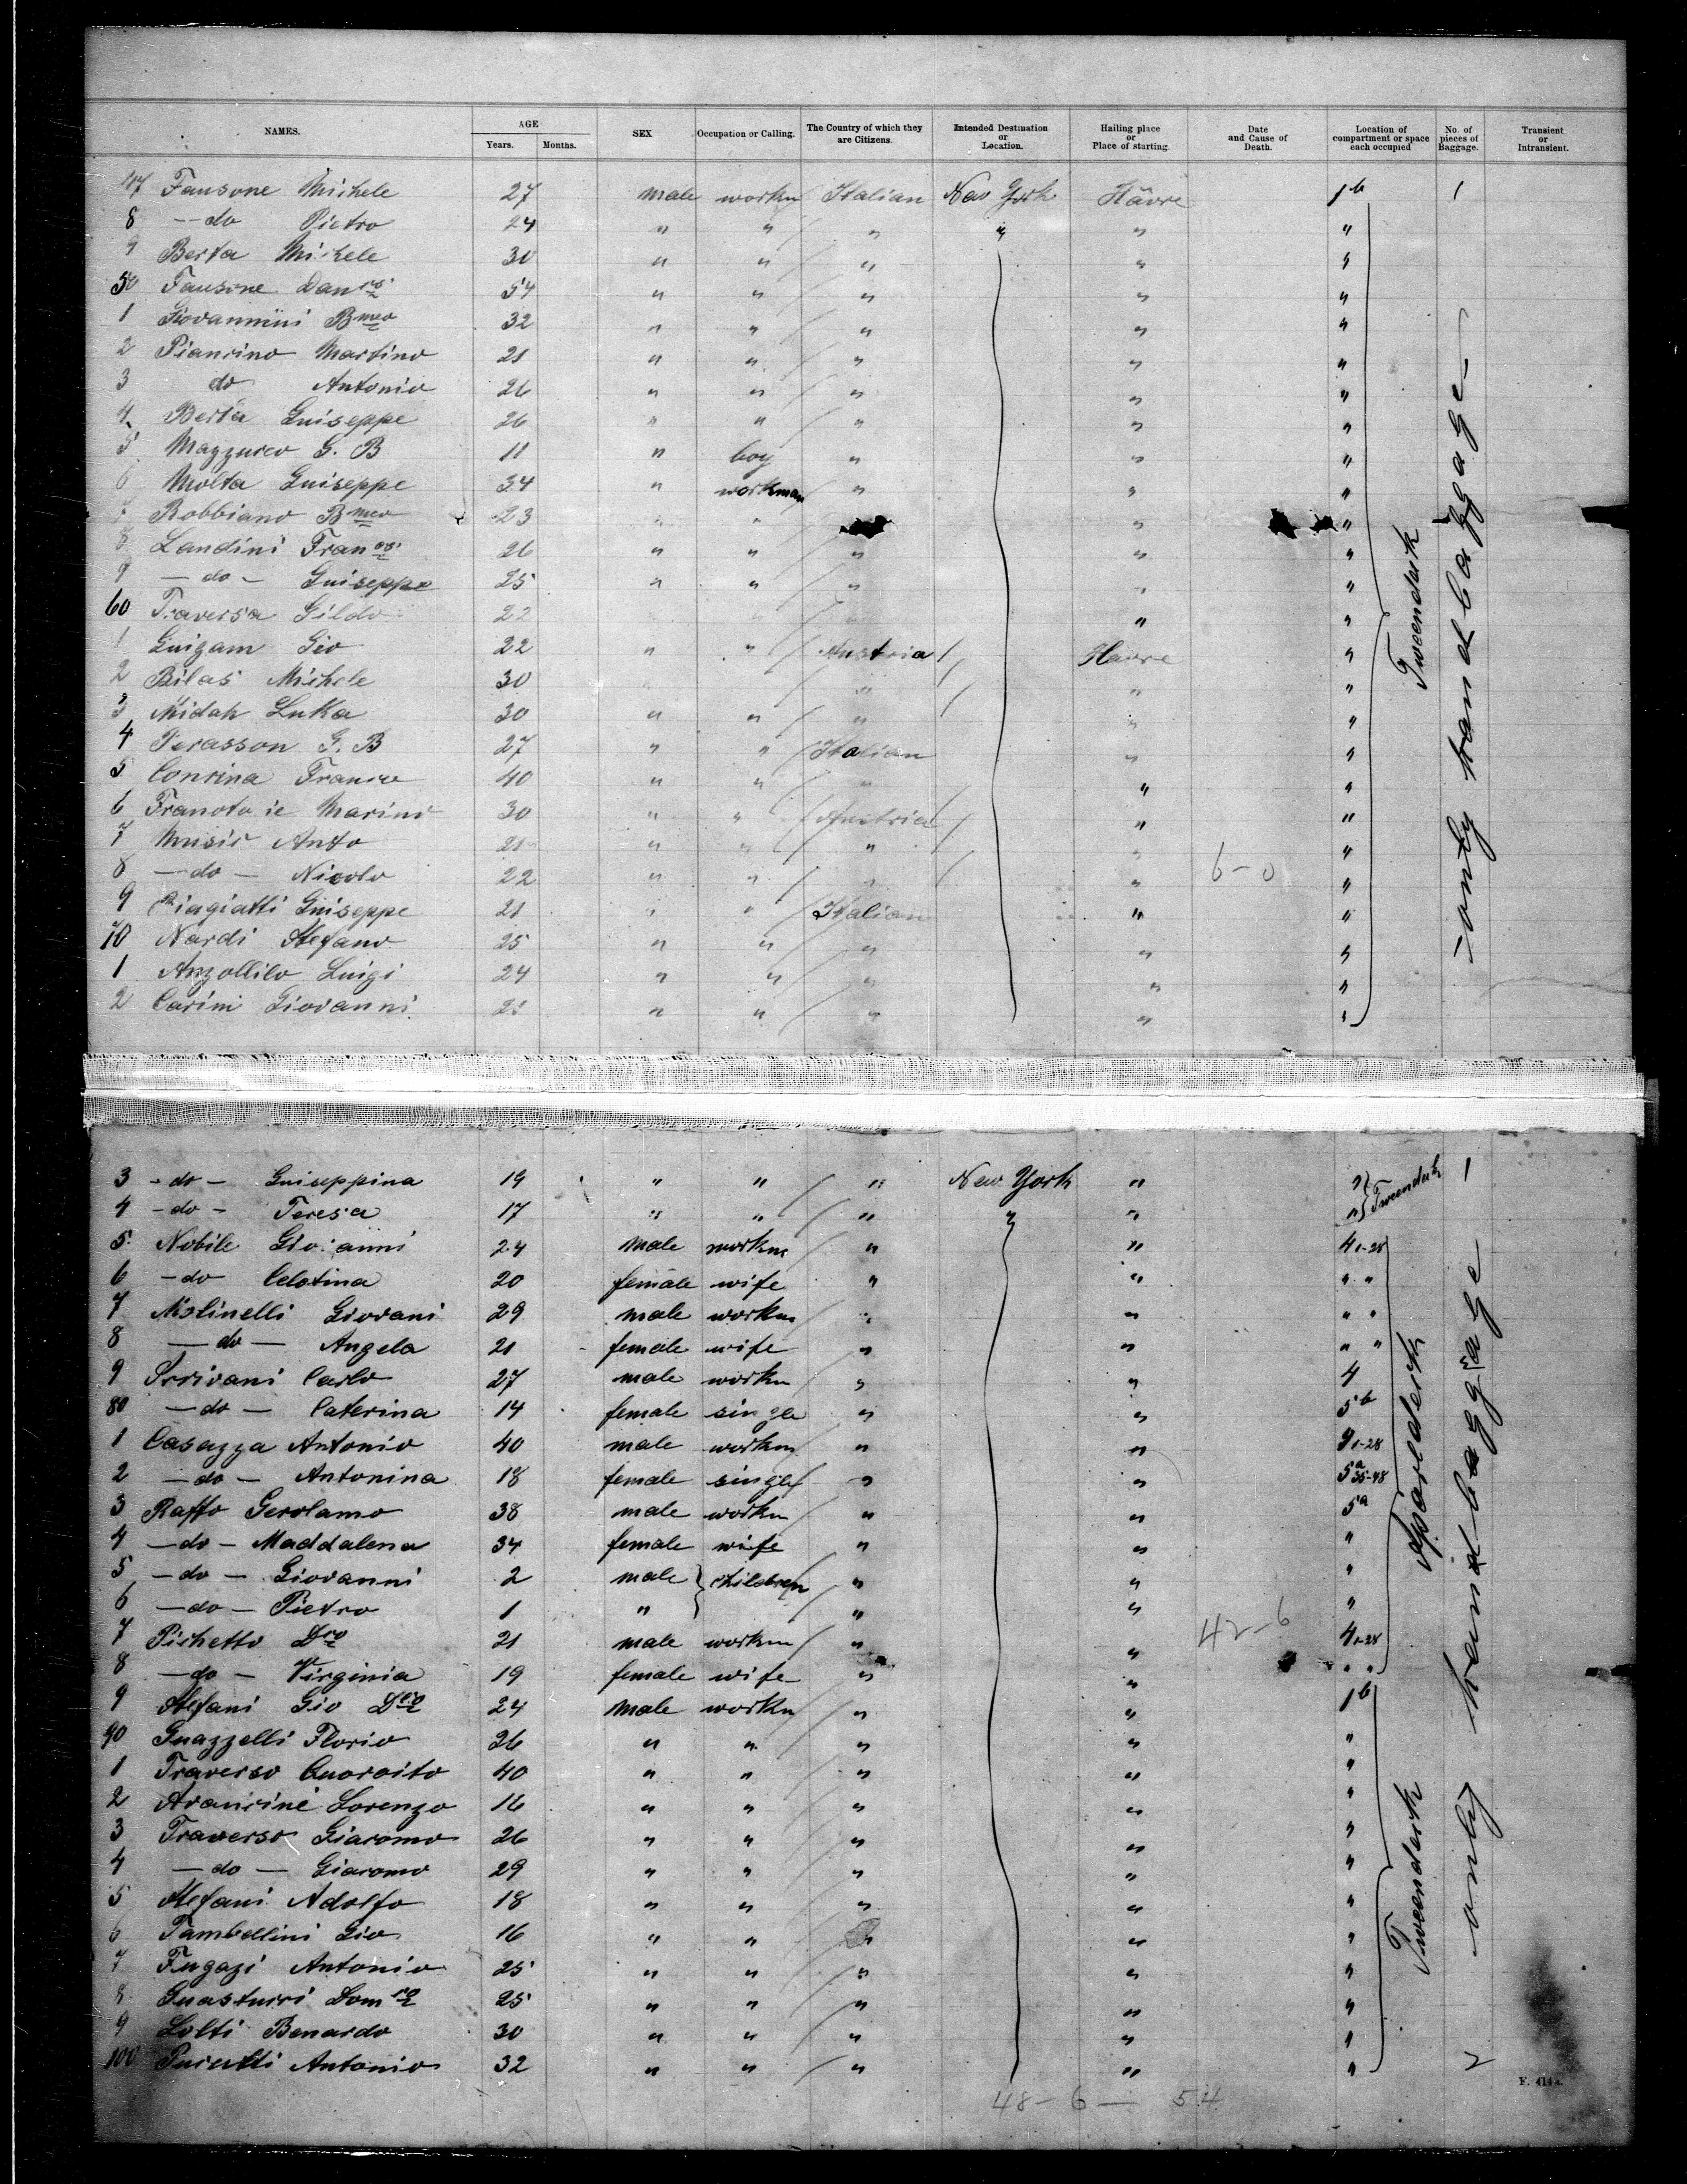 NAMES. AGE Years. Months. SEX Occupation or Calling. The Country of which they are Citizens. Intended Destination or Location. Hailing place or Place of starting. Date and Cause of Death. Location of compartment or space each occupied No. of pieces of Baggage. Transient or Intransient.
47 Fausone Michele 27 male workm Italian New York Hâvre 1b 1
8 — do Pietro 24 " " " " " "
9 Berta Michele 30 " " " " "
50 Fausone Danco 54 " " " " "
1 Giovannini Bmeo 32 " " " " "
2 Piancino Martino 21 " " " " "
3 do Antonio 26 " " " " "
4 Berta Guiseppe 26 " " " " "
5 Mazzurco G. B 11 " boy " " "
6 Molta Guiseppe 34 " workman " " "
7 Robbiano Bmeo 23 " " " "
8 Landini Franco 26 " " " " "
9 — do — Guiseppe 25 " " " " "
60 Traversa Gildo 22 " "
1 Guigam Gio 22 " " Austria Havre "
2 Bilas Michele 30 " " "
3 Midah Luka 30 " " " " "
4 Perasson G. B 27 " " Italian " "
5 Concina Franco 40 " " " " "
6 Franotovic Marino 30 " " Austria " "
7 Music Anto 21 " " " " "
8 — do — Nicolo 22 " " " " 6-0 "
9 Biagiatti Guiseppe 21 " " Italian " "
70 Nardi Stefano 25 " " " " "
1 Anzollilo Luigi 24 " " " " "
2 Carini Giovanni " " " " "
Tweendeck
— only hand baggage —
3 - do - Guiseppina 19 " " " New York " " Tweendeck 1
4 - do - Teresa 17 " " " " " "
5 Nobile Giovanni 24 male workm " " 4 1-28
6 - do Celestina 20 female wife " " " "
7 Molinelli Giovani 29 male workm " " " "
8 — do — Angela 21 female wife " " " "
9 Scrivani Carlo 27 male workm " " 4
80 — do — Caterina 14 female single " " 5b
1 Casazza Antonio 40 male workm " " 4 1-28
2 — do — Antonina 18 female single " " 5a 35-48
3 Raffo Gerolamo 38 male workm " " 5a
4 — do — Maddalena 34 female wife " " "
5 — do — Giovanni 2 male children " " "
6 — do — Pietro 1 " " " "
7 Pichetto Dco 21 male workm " " 42-6 4 1-28
8 — do — Virginia 19 female wife " " " "
9 Stefani Gio Dco 24 male workm " " 1b
90 Guazzelli Florio 26 " " " " "
1 Traverso 40 " " " " "
2 Arancini Lorenzo 16 " " " " "
3 Traverso Giacomo 26 " " " " "
4 — do — Giacomo 29 " " " " "
5 Stefani Adolfo 18 " " " " "
6 Tambellini Gio 16 " " " " "
7 Fugazi Antonio 25 " " " " "
8 Guastucci Domco 25 " " " " "
9 Lolti Benardo 30 " " " " "
100 Antonio 32 " " " " " 2
Tweendeck
— only hand baggage
48 - 6 — 54
F. 414a.